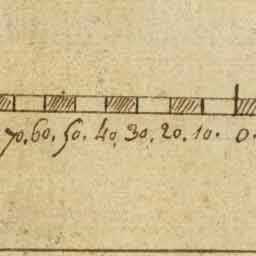 70. 60. 50. 40. 30. 20. 10. 0.